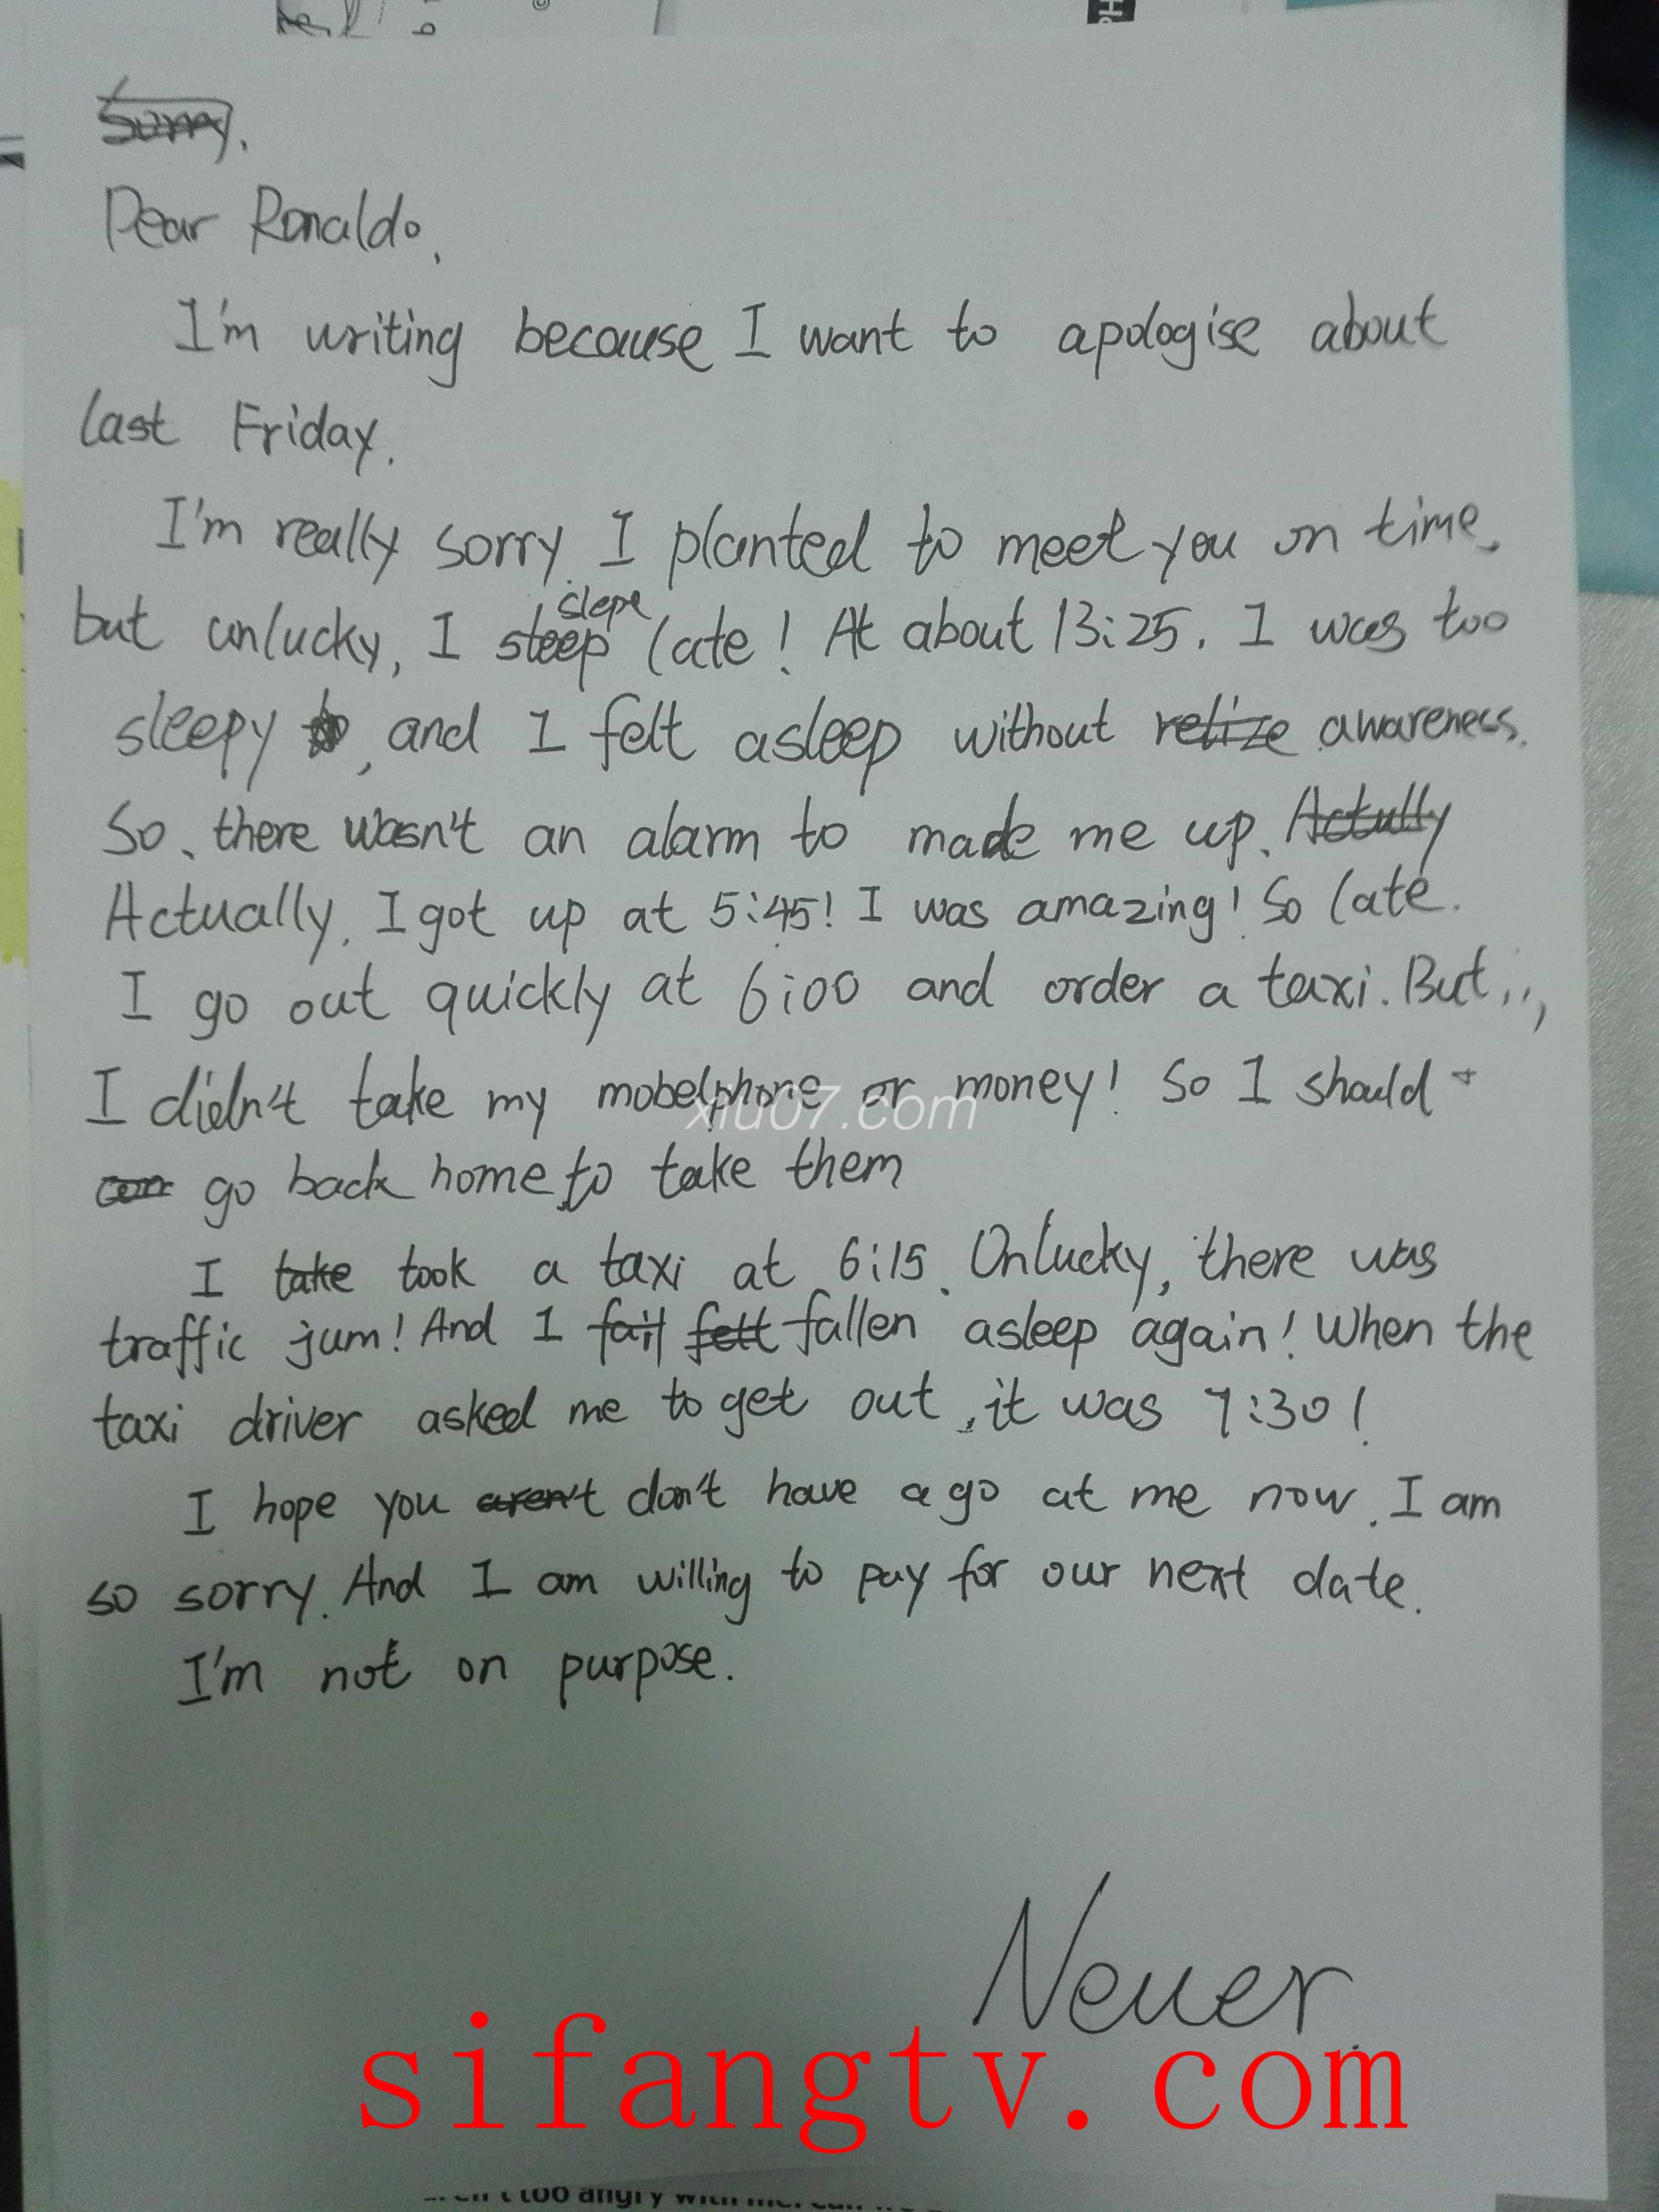 Sorry.
Dear Ronaldo,
I'm writing because I want to apologise about
last Friday.
I'm really sorry. I planted to meet you on time,
slepe
but unlucky, I steep late! At about 13:25, I was too
sleepy to, and I felt asleep without relize awareness.
So, there wasn't an alarm to made me up. Actully
Actually, I got up at 5:45! I was amazing! So late.
I go out quickly at 6:00 and order a taxi. But...,
I didn't take my mobelphone or money! So I should
xiu07.com
can go back home, to take them
I take took a taxi at 6:15. Unlucky, there was
traffic jum! And I fail felt fallen asleep again! When the
taxi driver asked me to get out, it was 7:30!
I hope you aren't don't have a go at me now. I am
so sorry. And I am willing to pay for our next date.
I'm not on purpose.
Neuer
sifangtv.com
too angry with me.